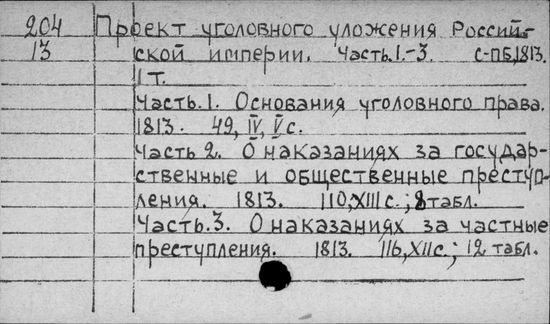 204 Проект уголовного уложения Россий-
13 ской империи. Часть.1.-3. С-ПБ,1813.
1 т.
Часть.1. Основания уголовного права.
1813. 49, IV, V с.
Часть 2. О наказаниях за государ-
ственные и общественные преступ-
ления. 1813. 110, XIII с.; 8 табл.
Часть.3. О наказаниях за частные
преступления. 1813. 116, XII с.; 12 табл.